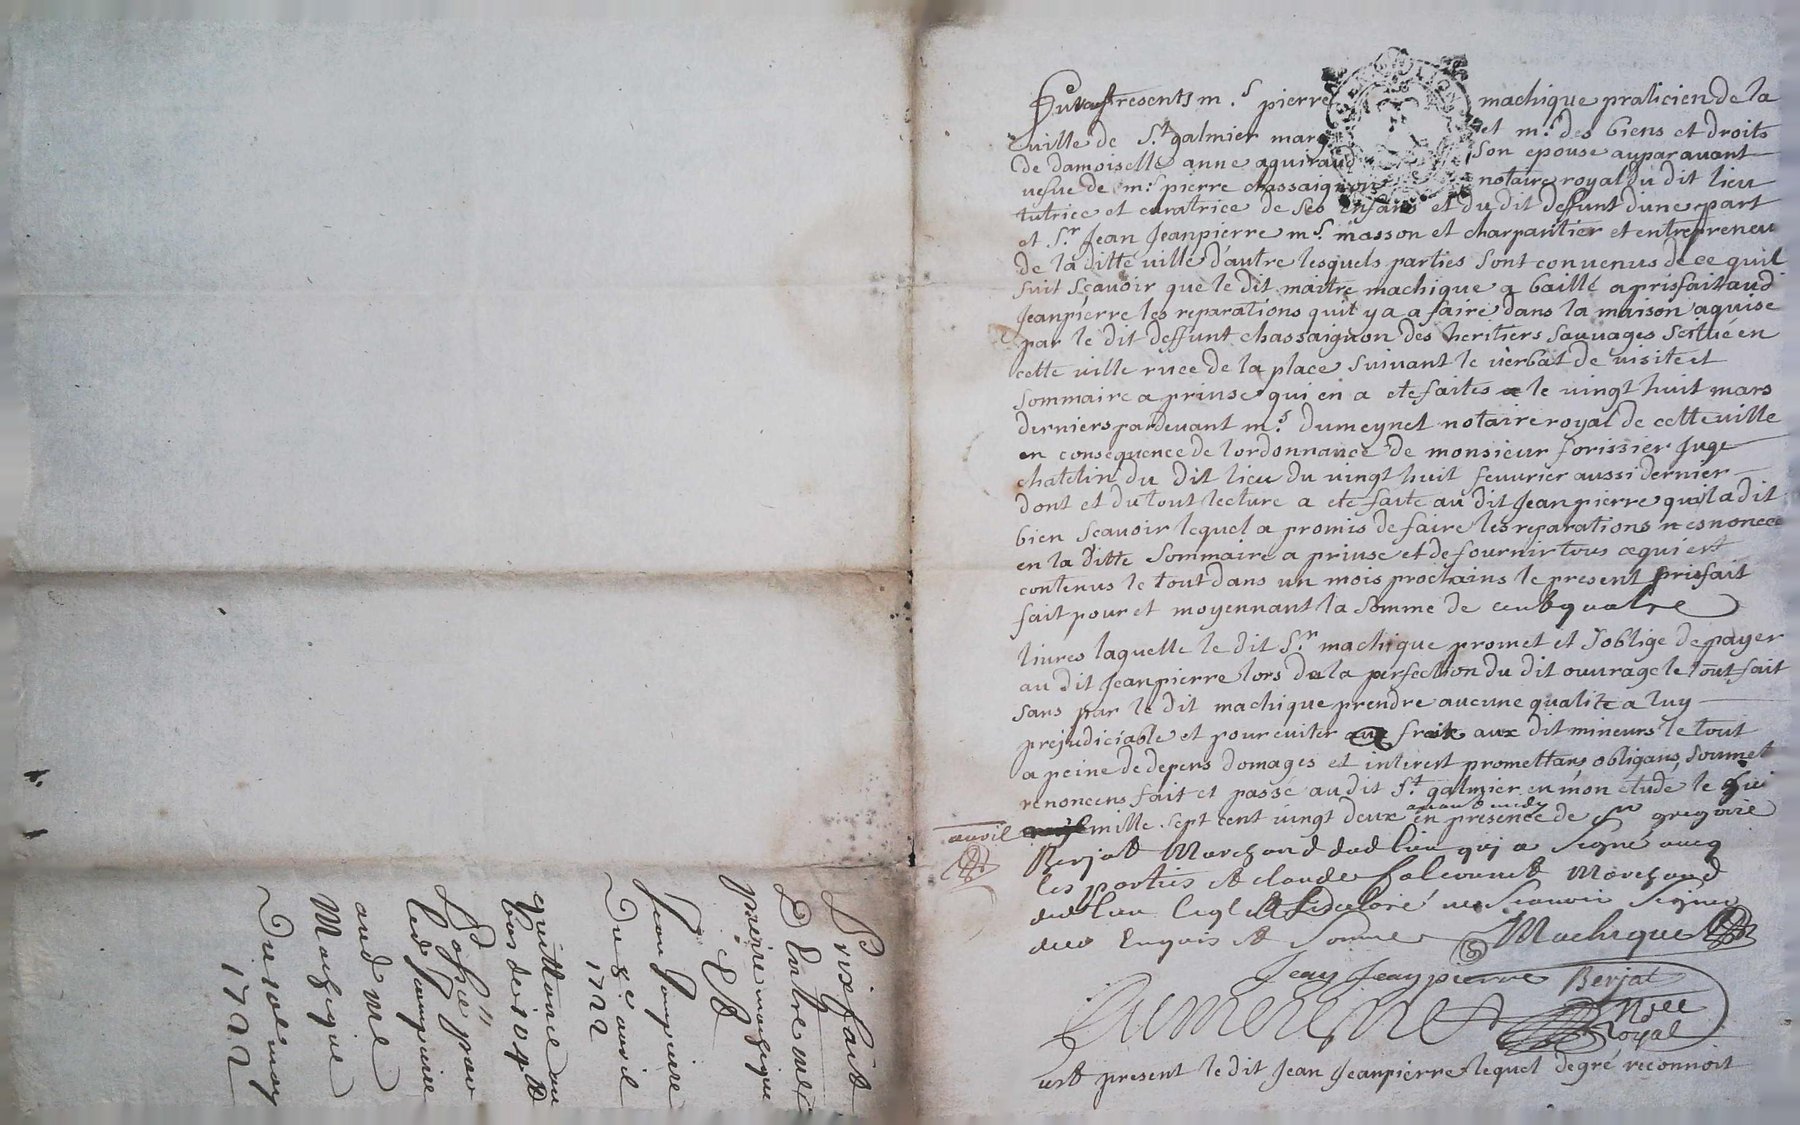 Furent presents m.s pierre machique praticien de la
ville de S.t galmier mary et m.e des biens et droits
de damoiselle anne aguiraud son epouse auparavant
vefve de m.e pierre chassaignon notaire royal du dit lieu
tutrice et curatrice de ses enfans et du dit deffunt dune part
et S.r Jean Jeanpierre m.s masson et charpantier et entrepreneu
de la ditte ville dautre lesquels parties sont convenus de ce quil
suit scavoir que le dit maitre machique a baillé a prisfait aud
Jeanpierre les reparations quil y a a faire dans la maison aquise
par le dit deffunt chassaignon des heritiers sauvages scitué en
cette ville ruee de la place suivant le verbat de visite et
sommaire a prinse qui en a ete faites le vingt huit mars
derniers pardevant m.s dumeynet notaire royal de cette ville
en consequence de lordonnance de monsieur forissier juge
chatelin du dit lieu du vingt huit fevurier aussi dernier
dont et du tout lecture a ete faite au dit Jeanpierre quil a dit
bien scavoir lequel a promis de faire les reparations esnoncee
en la ditte sommaire a prinse et de fournir tous ce qui est
contenus le tout dans un mois prochains le present prisfait
fait pour et moyennant la somme de cent quatre
livres laquelle le dit S.r machique promet et soblige de payer
au dit Jeanpierre lors de la perfection du dit ouvrage le tout fait
sans par le dit machique prendre aucune qualite a luy
prejudiciable et pour eviter frais aux dit mineurs le tout
a peine de depens domages et interest promettans obligans soumet
renoncens fait et passé au dit S.t galmier en mon etude le
avant midy
avril mille sept cent vingt deux en presence de S.r gregoire
Berjat Marchand dud lieu qui a signé avec
les parties et claude Marchand
dud lieu declaré ne scavoir signer
de ce enquis et sommé Machique
Jean Jeanpierre Berjat
Dumeynet Nre
Royal
est present le dit Jean Jeanpierre lequel de gré reconnoit
Prixfait
Entre me
pierre machique
Et
Jean Jeanpierre
Du avril
1722
quittance au
bas de 104 lt
passée par
led Jeanpierre
aud me
Machique
Du may
1722